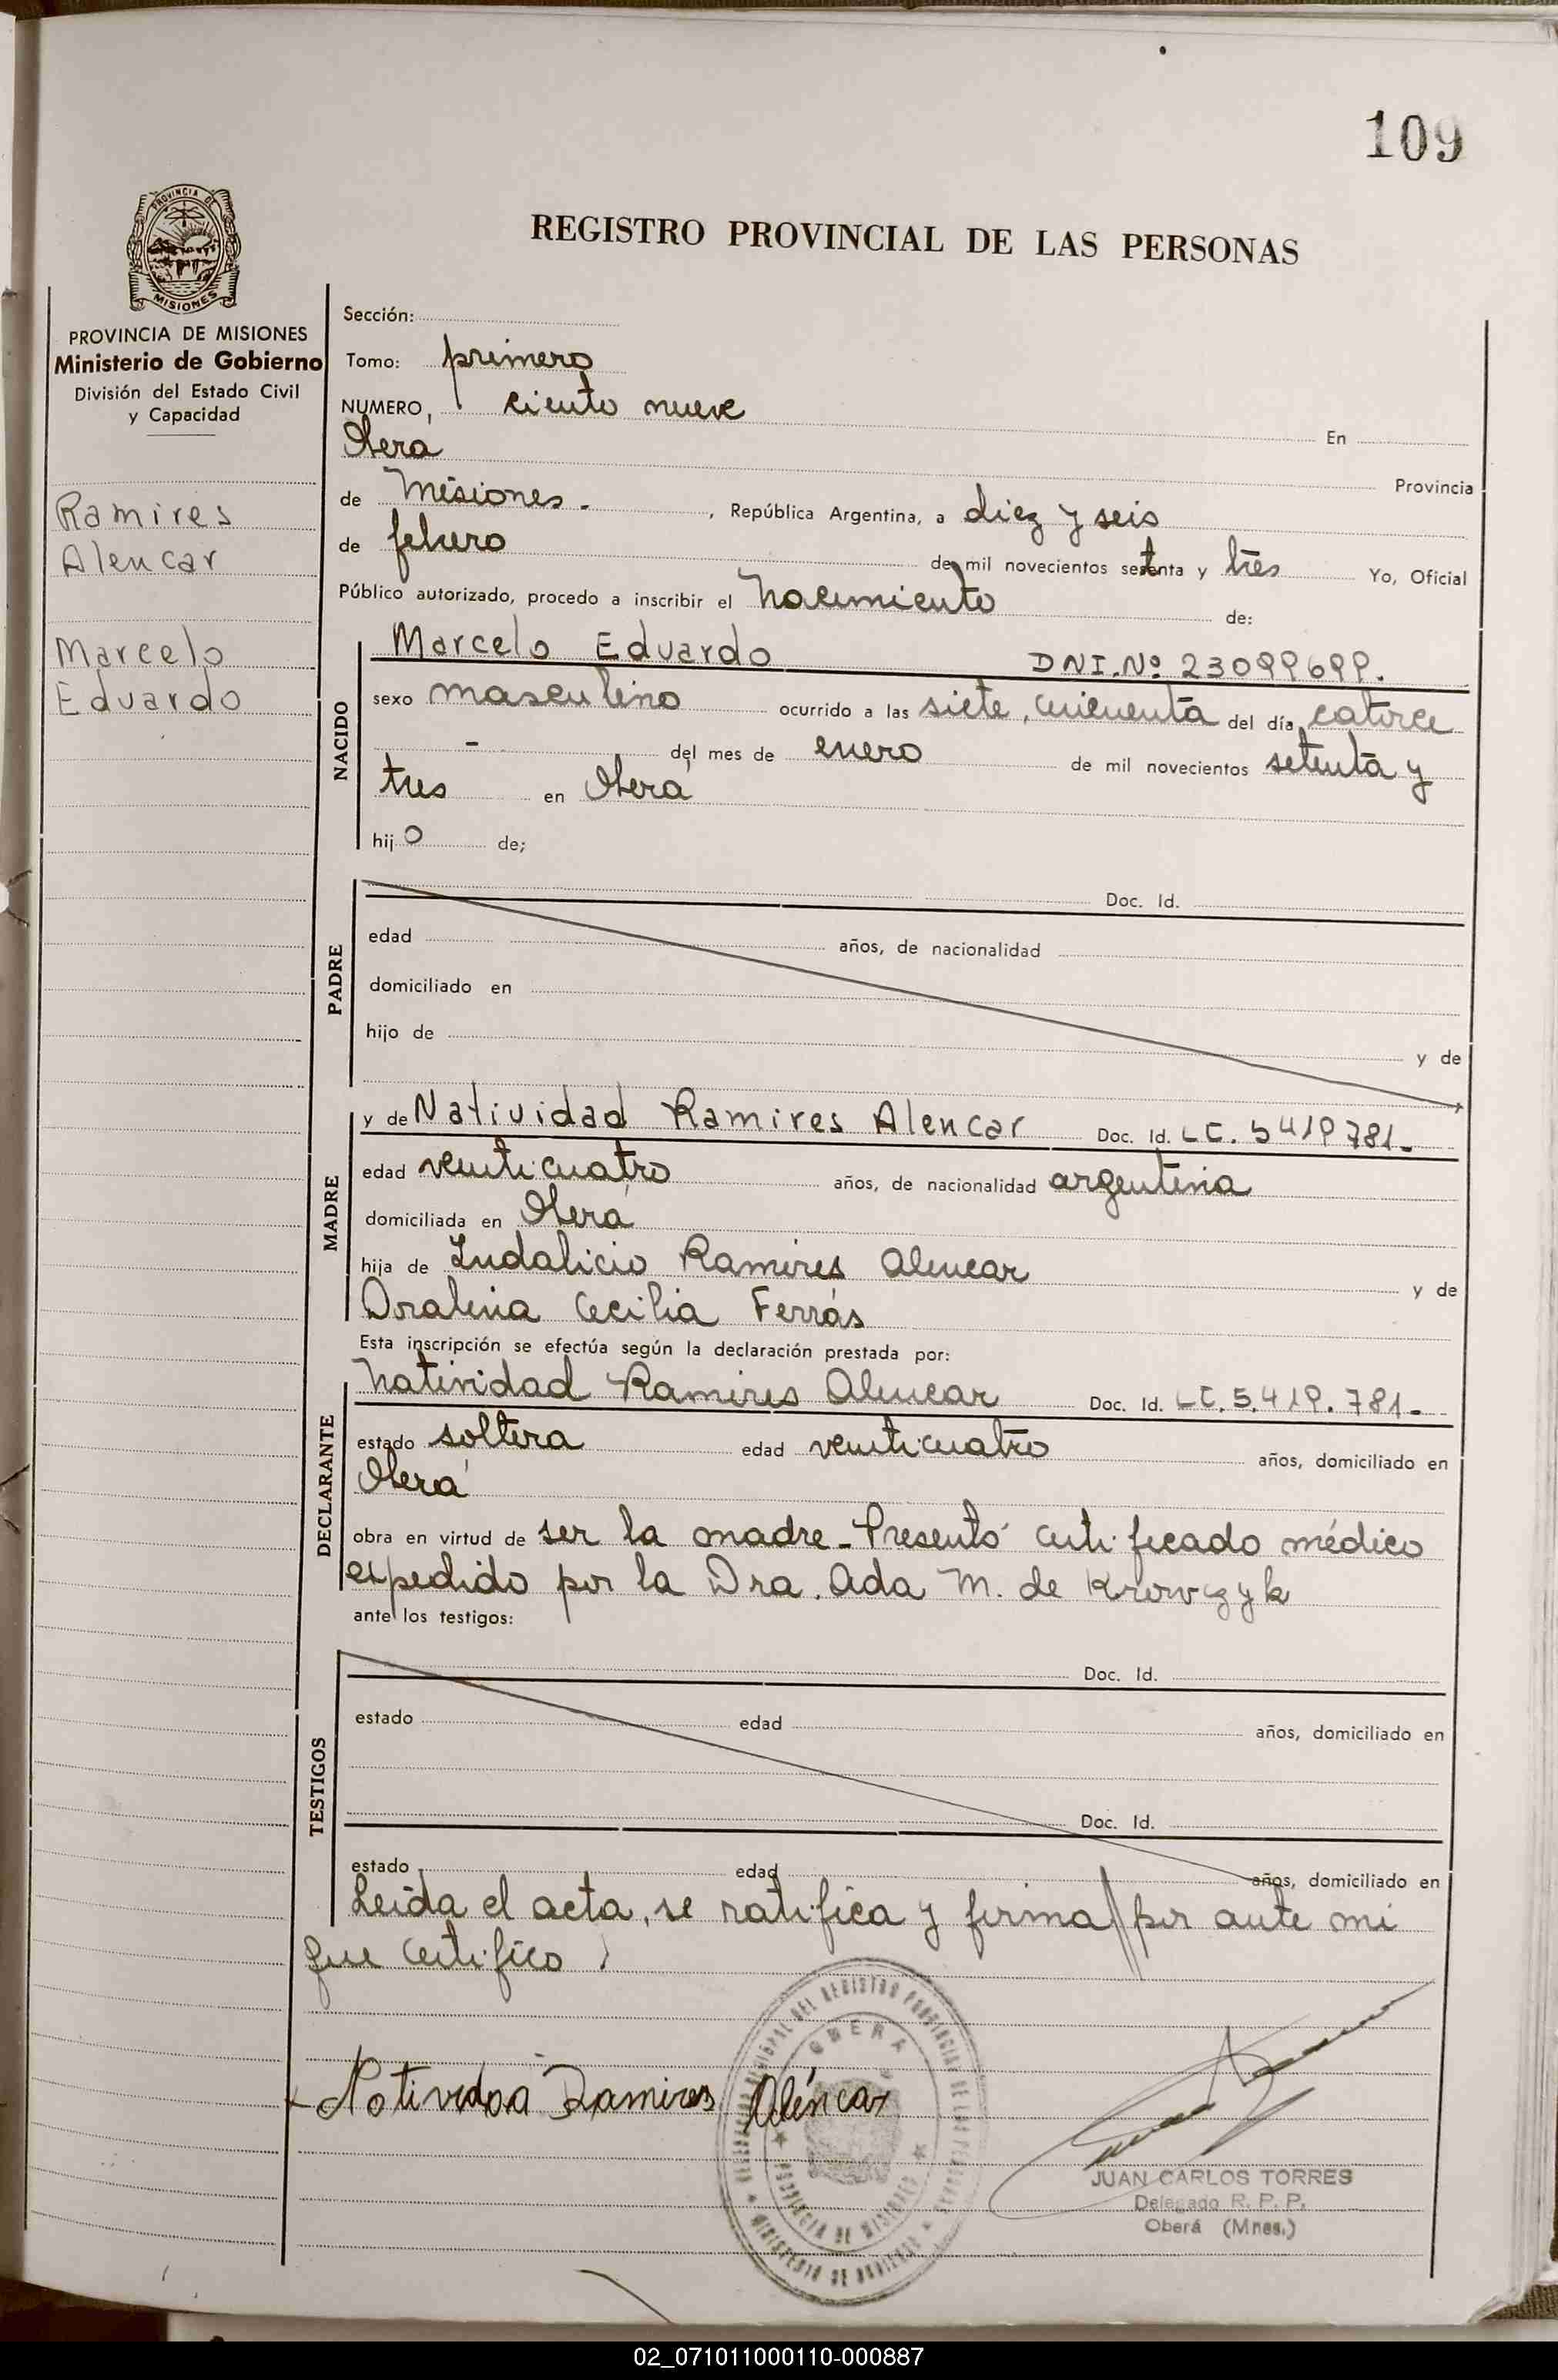 109
PROVINCIA DE
MISIONES
REGISTRO PROVINCIAL DE LAS PERSONAS
PROVINCIA DE MISIONES
Ministerio de Gobierno
División del Estado Civil
y Capacidad
Ramires
Alencar
Marcelo
Eduardo
Sección:
Tomo: primero
NUMERO, ciento nueve En
Oberá Provincia
de Misiones. , República Argentina, a diez y seis
de febrero de mil novecientos setenta y tres Yo, Oficial
Público autorizado, procedo a inscribir el nacimiento de:
NACIDO
Marcelo Eduardo DNI. Nº 23099699.
sexo masculino ocurrido a las siete, cincuenta del día catorce
- del mes de enero de mil novecientos setenta y
tres en Oberá
hij o de;
PADRE
Doc. Id.
edad años, de nacionalidad
domiciliado en
hijo de y de
MADRE
y de Natividad Ramires Alencar Doc. Id. LC. 5419781.
edad veinticuatro años, de nacionalidad argentina
domiciliada en Oberá
hija de Indalicio Ramires Alencar y de
Doralina Cecilia Ferrás
Esta inscripción se efectúa según la declaración prestada por:
DECLARANTE
Natividad Ramires Alencar Doc. Id. LC. 5.419.781.
estado soltera edad veinticuatro años, domiciliado en
Oberá
obra en virtud de ser la madre - Presentó certificado médico
expedido por la Dra. Ada M. de Krowczyk
ante los testigos:
TESTIGOS
Doc. Id.
estado edad años, domiciliado en
Doc. Id.
estado edad años, domiciliado en
Leída el acta, se ratifica y firma // por ante mi
que certifico
Natividad Ramires Aléncar
OBERA
PROVINCIA DE MISIONES
JUAN CARLOS TORRES
Delegado R. P. P.
Oberá (Mnes.)
02_071011000110-000887